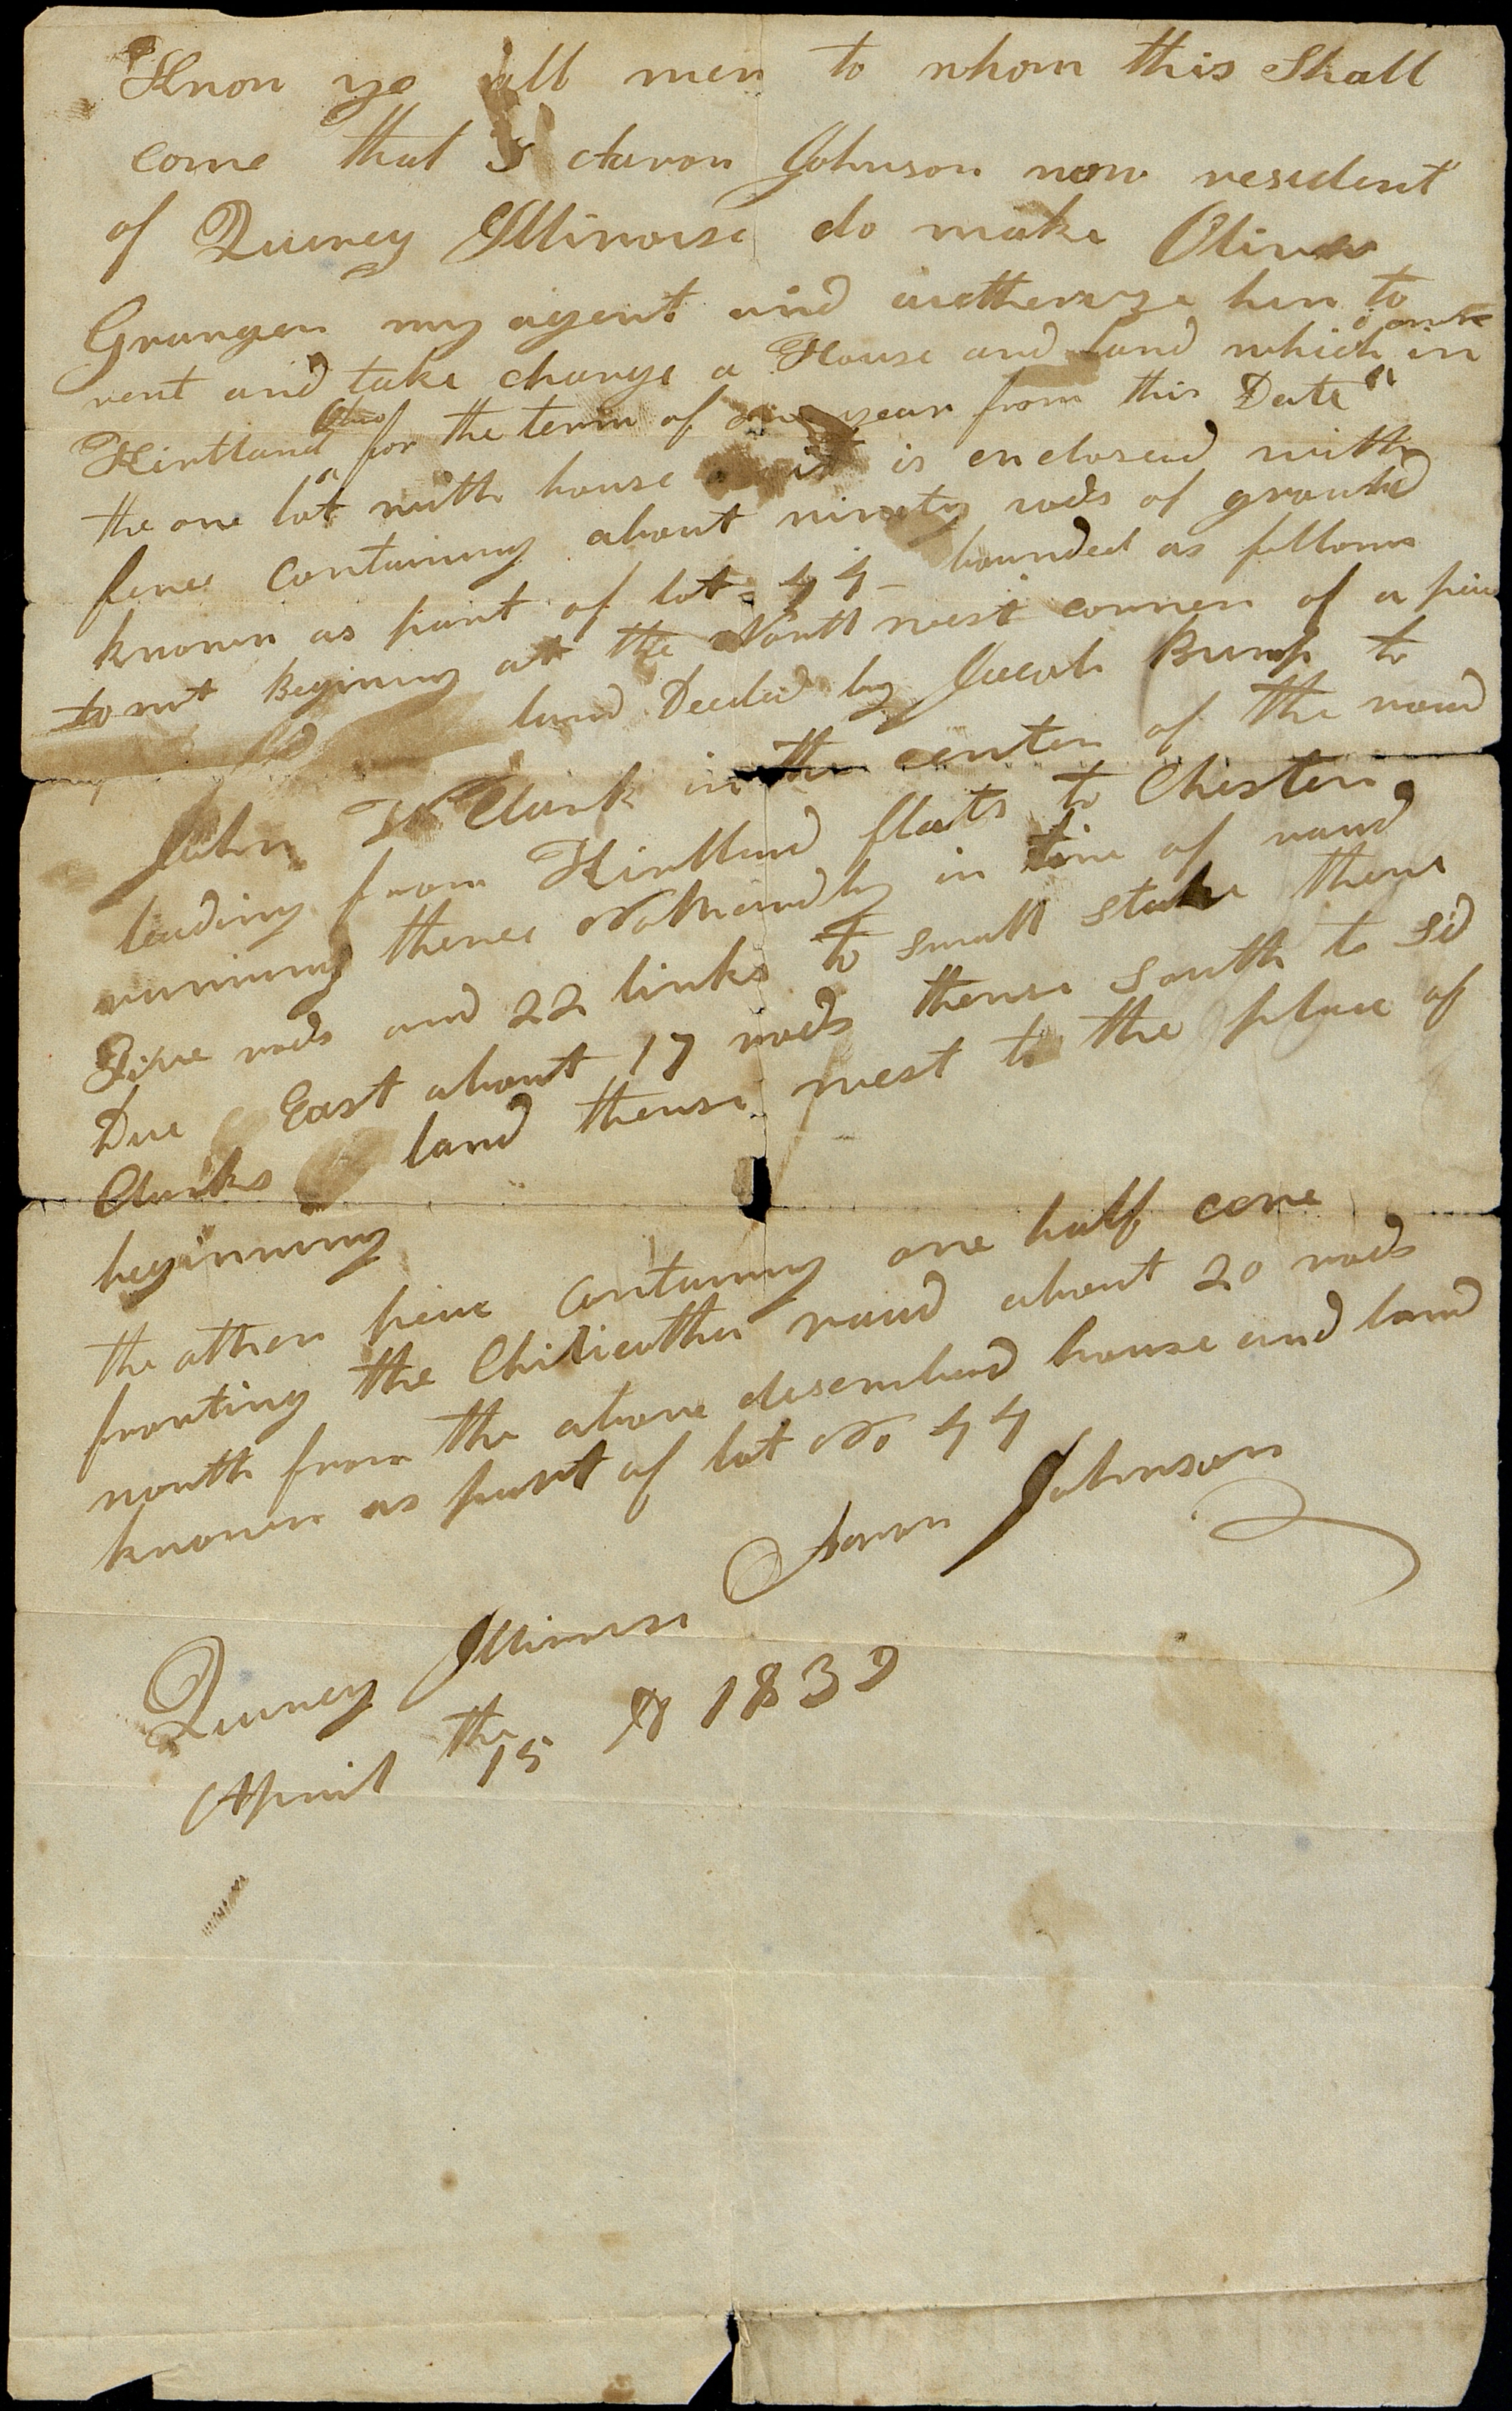 Know ye all men to whom this Shall
come that I Aaron Johnson now resident
of Quincy Illinoise do make Oliver
Granger my agent and autherize him to
rent and take charge a House and land which in
Kirtland Ohio for the term of one year from this Date
the one lot with house it is enclosed with
fence containing about ninety rods of ground
known as part of lot 44 bounded as follows
to wit Begining at the North west corner of a peice
land Deeded by Jacob Bump to
John W Clark in the center of the road
leading from Kirtland flats to Chester
running thence Notherardly in line of road
Five rods and 22 links to small stake thence
Due East about 17 rods thense south to sd
Clarks land thense west to the place of
beginning
the other peice containing one half acre
fronting the Chilicothe road about 20 rods
north from the above discribed house and land
known as part of lot No 44
Aaron Johnson
Quincy Illinoise
April the 15 AD 1839